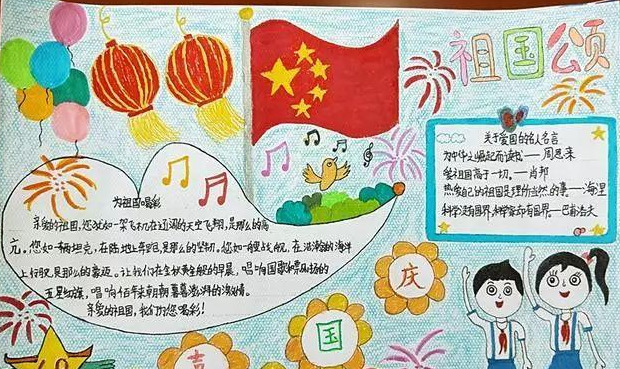 祖国颂
关于爱国的名人名言
为中华之崛起而读书——周恩来
爱祖国高于一切。——肖邦
热爱自己的祖国是理所当然的事——海涅
科学没有国界,科学家却有国界。—巴甫洛夫
为祖国喝彩
亲爱的祖国,您犹如一架飞机,在辽阔的天空飞翔,是那么的高
亢。您如一辆坦克,在陆地上奔跑,是那么的坚韧。您如一艘战舰,在浩瀚的海洋
上行驶,是那么的豪迈。让我们在金秋的早晨,唱响国歌,飘扬的
五星红旗,唱响百年来朝朝暮暮澎湃的激情。
亲爱的祖国,我们为您喝彩!
庆
国